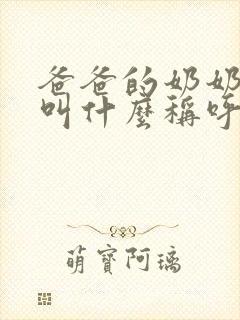 爸爸的奶奶
叫什麼稱呼
萌寶阿璃